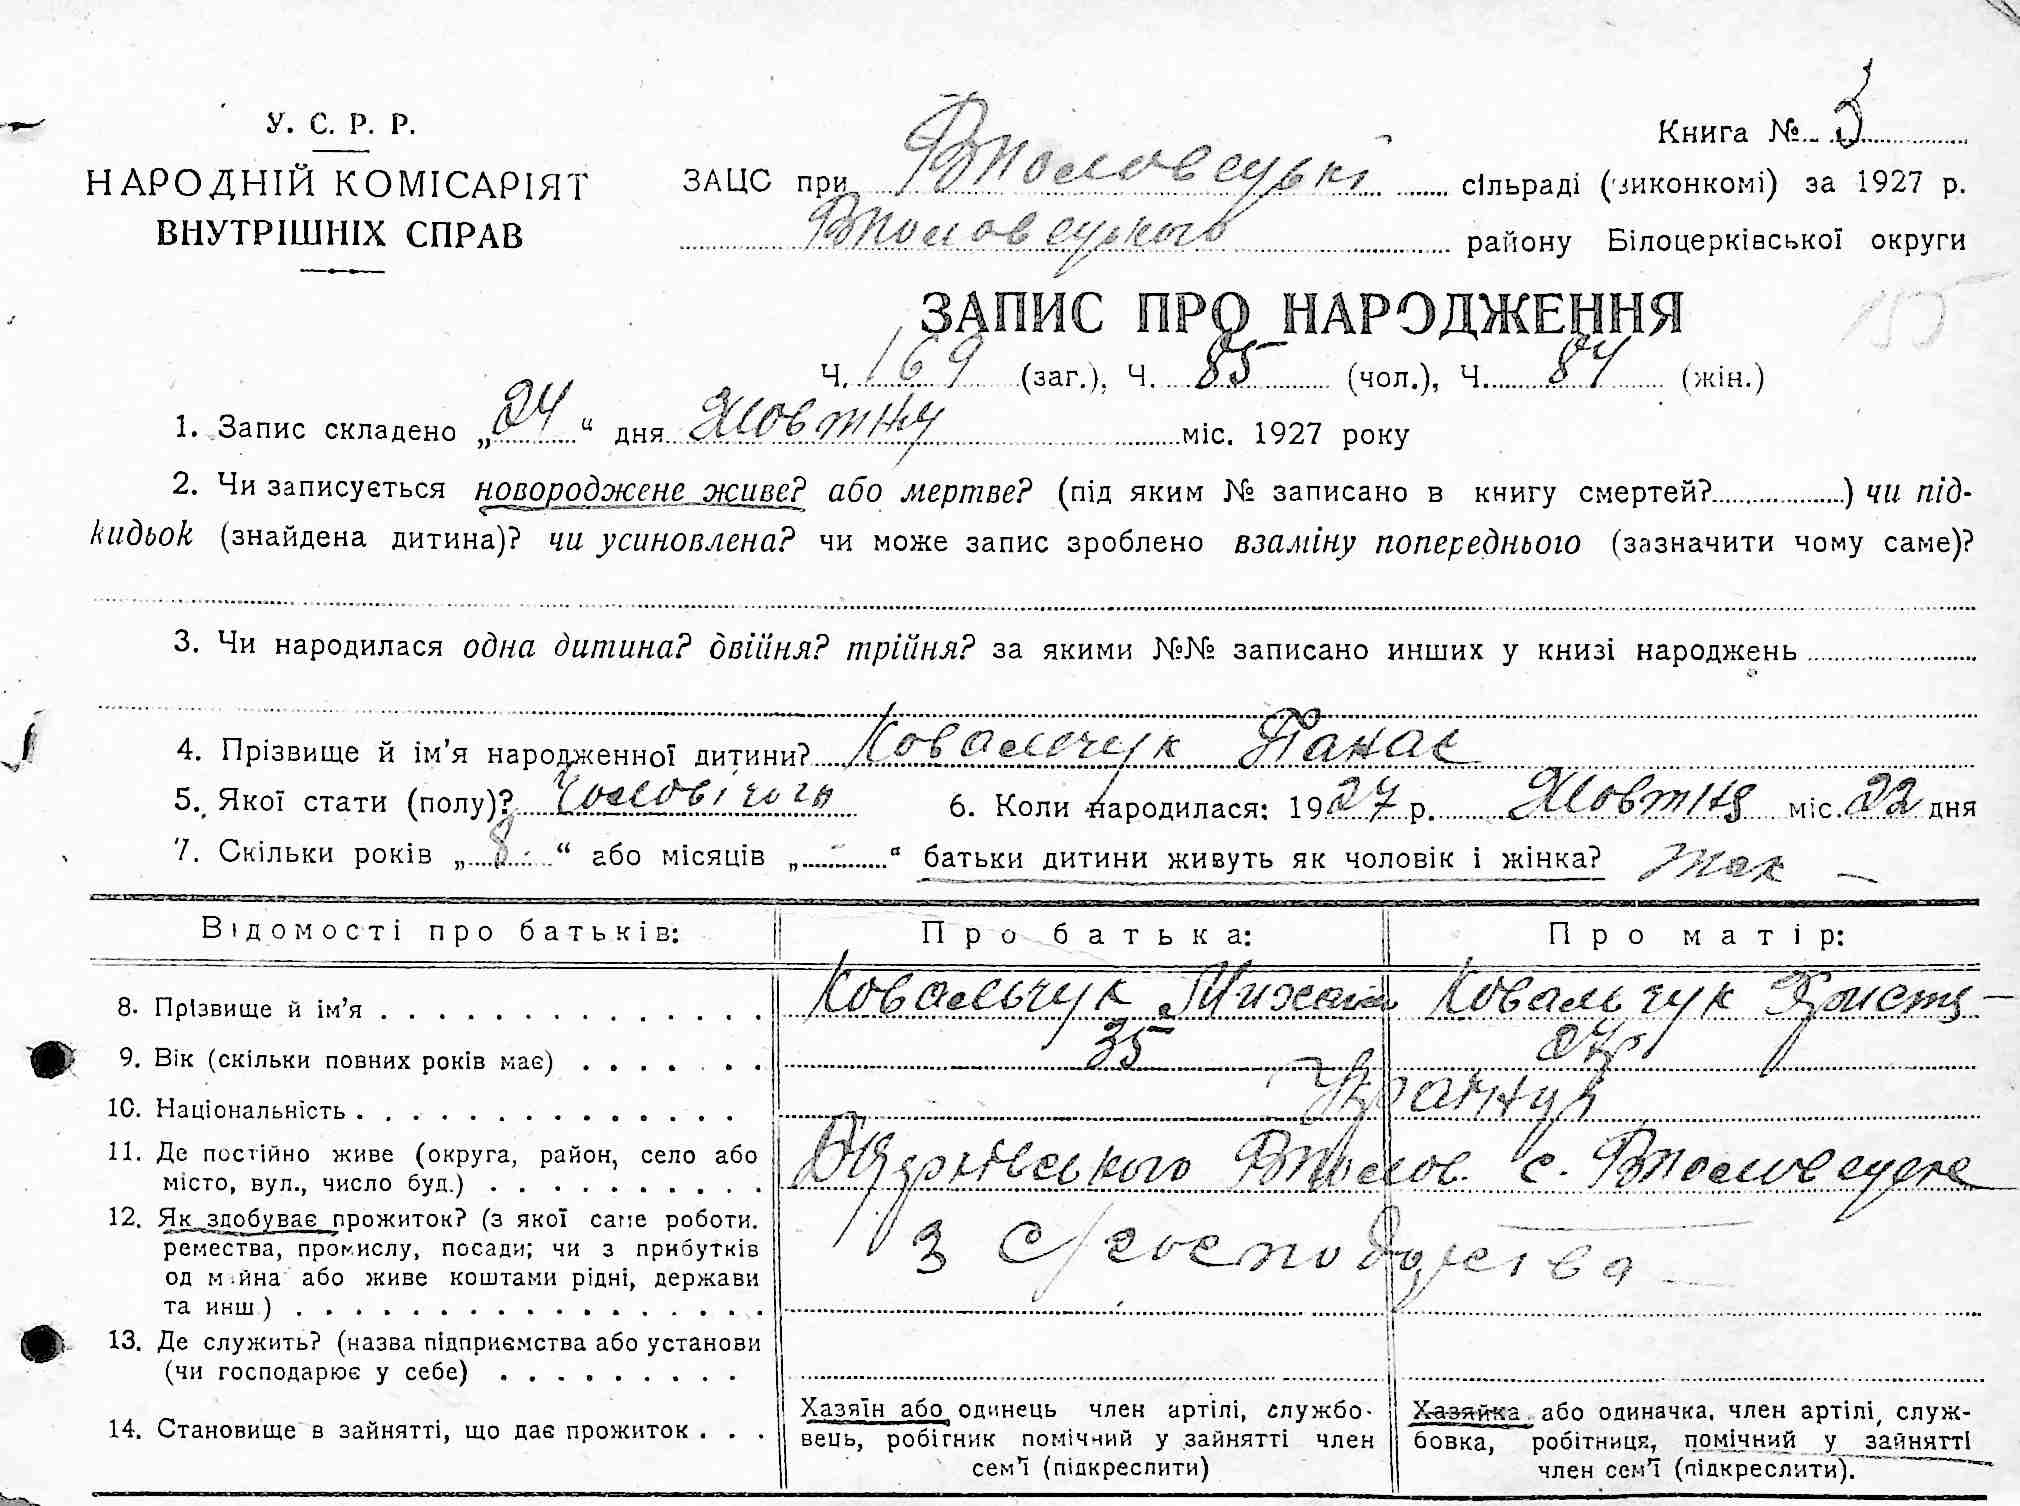 У. С. Р. Р.
НАРОДНІЙ КОМІСАРІЯТ
ВНУТРІШНІХ СПРАВ
Книга № 3
ЗАЦС при Вполовецькі сільраді (виконкомі) за 1927 р.
Вполовецького району Білоцерківської округи
ЗАПИС ПРО НАРОДЖЕННЯ
155
Ч. 169 (заг.), Ч. 85 (чол.), Ч. 84 (жін.)
1. Запис складено „24“ дня Жовтня міс. 1927 року
2. Чи записується новороджене живе? або мертве? (під яким № записано в книгу смертей?) чи під-
кидьок (знайдена дитина)? чи усиновлена? чи може запис зроблено взаміну попереднього (зазначити чому саме)?
3. Чи народилася одна дитина? двійня? трійня? за якими №№ записано инших у книзі народжень
4. Прізвище й ім’я народженної дитини? Ковальчук Панас
5. Якої стати (полу)? Чоловічого 6. Коли народилася: 1927 р. Жовтня міс. 22 дня
7. Скільки років „8“ або місяців „-“ батьки дитини живуть як чоловік і жінка? так —
Відомості про батьків: Про батька: Про матір:
8. Прізвище й ім’я Ковальчук Михайло Ковальчук Христя
9. Вік (скільки повних років має) 35 27р
10. Національність Українці
11. Де постійно живе (округа, район, село або
місто, вул., число буд.) Вполов. с. Вполовецьке
12. Як здобуває прожиток? (з якої саме роботи,
ремества, промислу, посади; чи з прибутків
од майна або живе коштами рідні, держави
та инш.) З с/господарства —
13. Де служить? (назва підприємства або установи
(чи господарює у себе)
14. Становище в зайнятті, що дає прожиток
Хазяїн або одинець член артілі, службо-
вець, робітник помічний у зайнятті член
сем’ї (підкреслити)
Хазяйка або одиначка, член артілі, служ-
бовка, робітниця, помічний у зайнятті
член сем’ї (підкреслити).